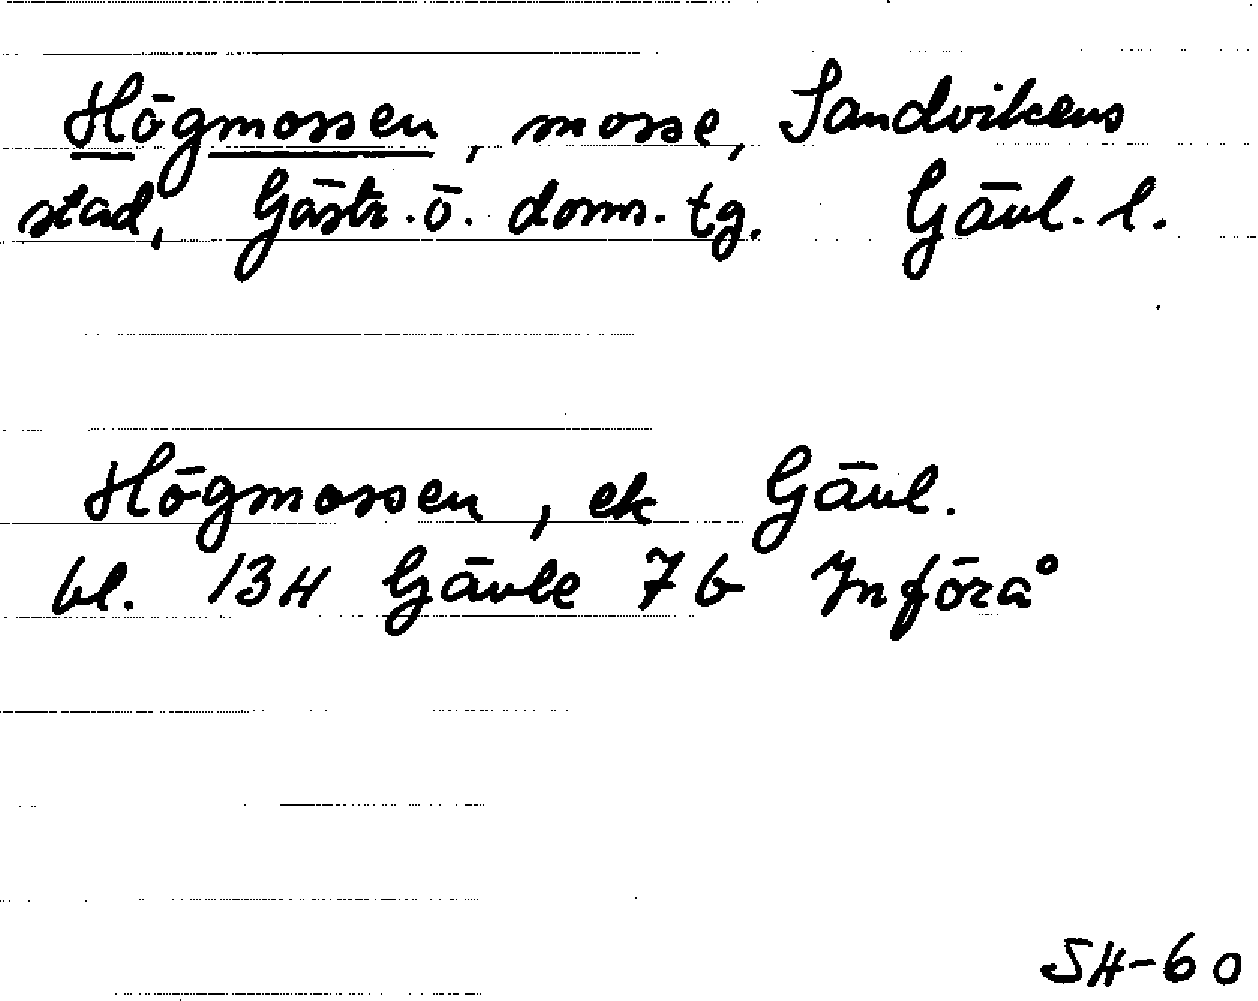 Högmossen, mosse, Sandvikens
stad, Gästr. ö. doms. tg. Gävl. l.
Högmossen, ek Gävl.
bl. 13H Gävle 7b Införå
SH-60